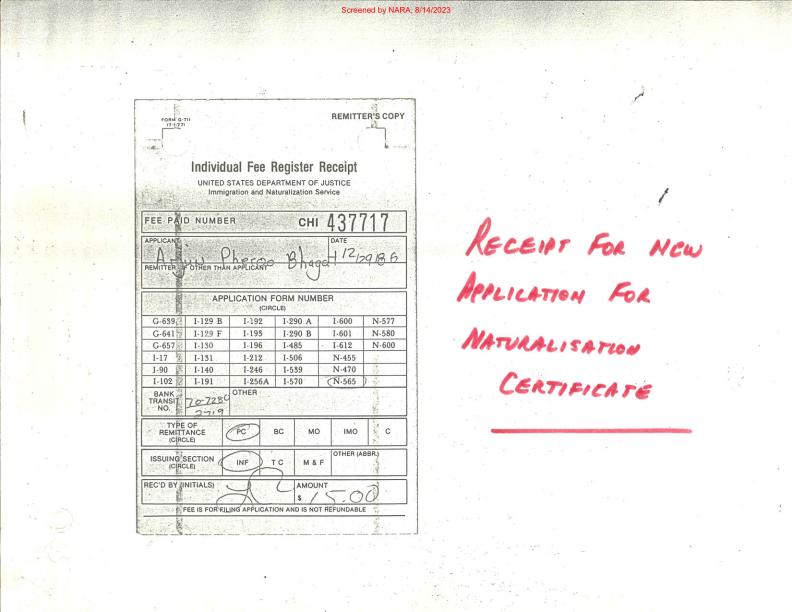 Screened by NARA, 8/14/2023
FORM G-711
(7-1-77)
REMITTER'S COPY
Individual Fee Register Receipt
UNITED STATES DEPARTMENT OF JUSTICE
Immigration and Naturalization Service
FEE PAID NUMBER CHI 437717
APPLICANT DATE
Arjun Pheroo Bhagat 12/29/86
REMITTER IF OTHER THAN APPLICANT
APPLICATION FORM NUMBER
(CIRCLE)
G-639 I-129 B I-192 I-290 A I-600 N-577
G-641 I-129 F I-193 I-290 B I-601 N-580
G-657 I-130 I-196 I-485 I-612 N-600
I-17 I-131 I-212 I-506 N-455
I-90 I-140 I-246 I-539 N-470
I-102 I-191 I-256A I-570 N-565
BANK TRANSIT NO. 70-7280 OTHER
2719
TYPE OF REMITTANCE (CIRCLE) PC BC MO IMO C
ISSUING SECTION (CIRCLE) INF T C M & F OTHER (ABBR.)
REC'D BY (INITIALS) AMOUNT
$ 15.00
FEE IS FOR FILING APPLICATION AND IS NOT REFUNDABLE
RECEIPT FOR NEW
APPLICATION FOR
NATURALISATION
CERTIFICATE